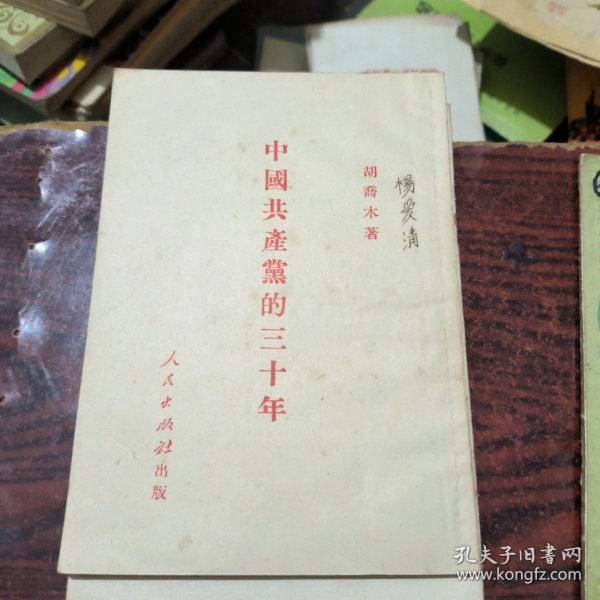 楊爱清
胡喬木著
中國共產黨的三十年
人民出版社出版
孔夫子旧书网
www.kongfz.com